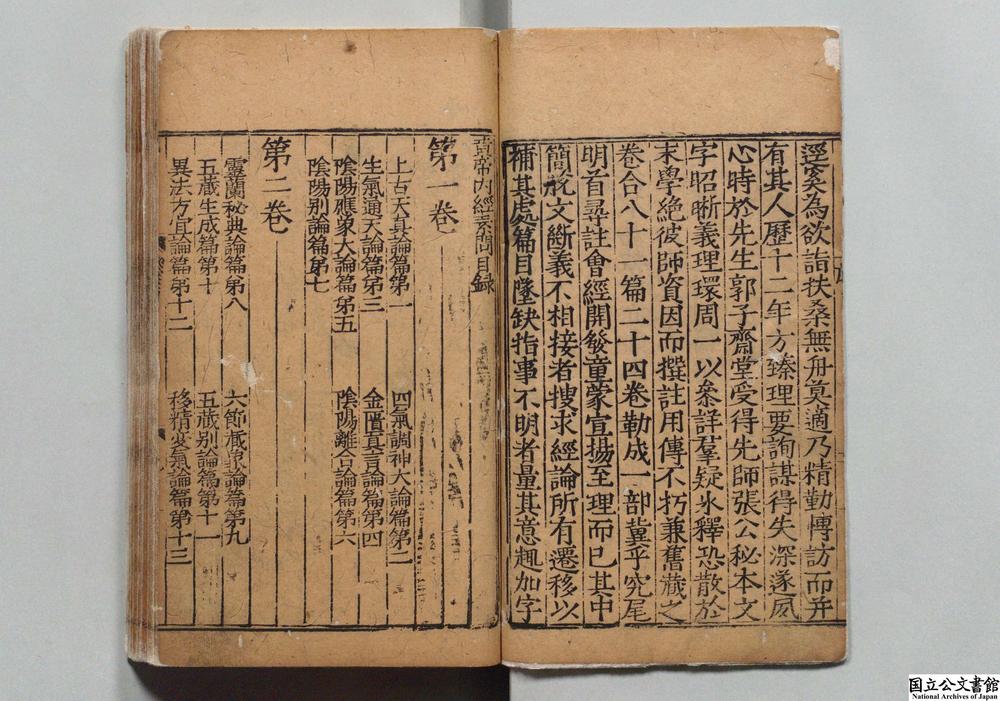 逕奚為欲詣扶桑無舟莫適乃精勤博訪而并
有其人歷十二年方臻理要詢謀得失深遂夙
心時於先生郭子齋堂受得先師張公秘本文
字昭晣義理環周一以叅詳羣疑氷釋恐散於
末學絶彼師資因而撰註用傳不朽兼舊藏之
卷合八十一篇二十四卷勒成一部冀乎究尾
明首尋註會經開發童蒙宣揚至理而已其中
簡脫文斷義不相接者搜求經論所有遷移以
補其處篇目墜缺指事不明者量其意趣加字
黃帝内經素問目録
第一卷
上古天真論篇第一 四氣調神大論篇第二
生氣通天論篇第三 金匱真言論篇第四
陰陽應象大論篇第五 陰陽離合論篇第六
陰陽別論篇第七
第二卷
靈蘭秘典論篇第八 六節蔵象論篇第九
五蔵生成篇第十 五蔵別論篇第十一
異法方宜論篇第十二 移精变氣論篇第十三
国立公文書館
National Archives of Japan